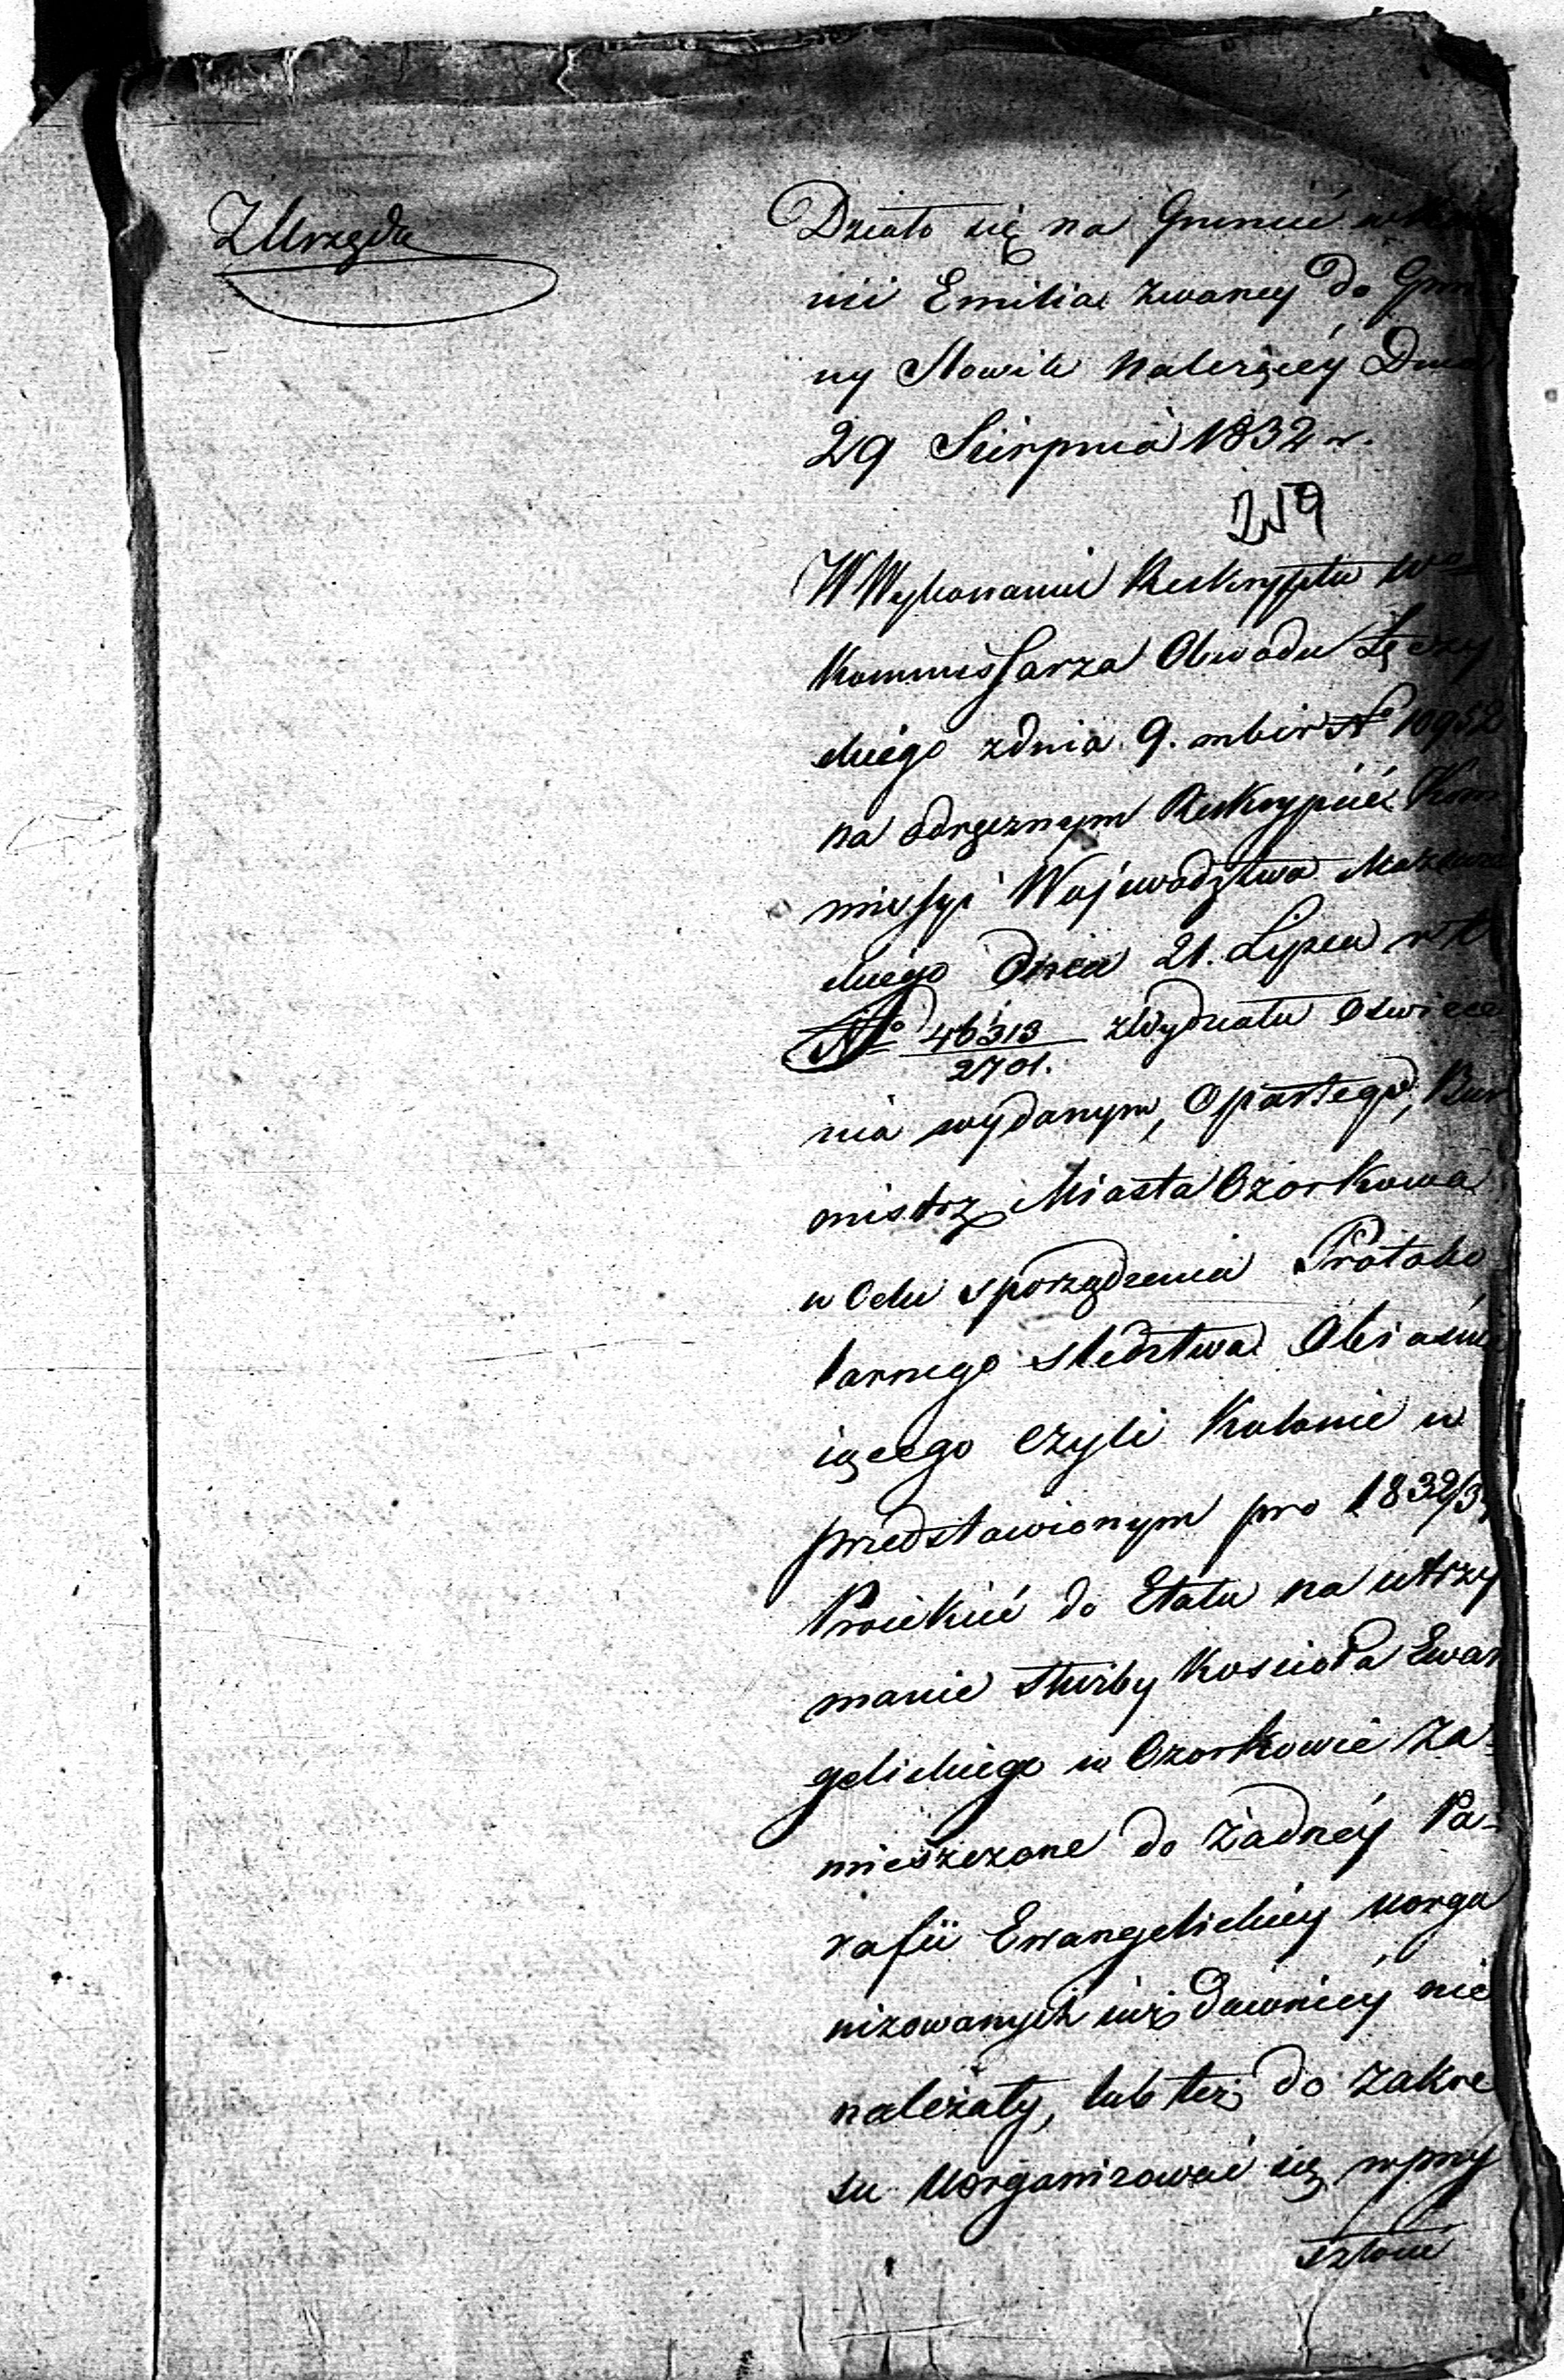 Z Urzędu
Działo się na Gruncie w Kolo
nii Emilia zwaney do Gmi
ny Słowik Nalezącéy Dnia
29 Sierpnia 1832 r.
259
W Wykonaniu Reskryptu Wo
Kommissarza Obwodu Łęczy
ckiego z dnia 9. mbir No 10952
na odręcznym Reskrypcie Kom
missyi Województwa Mazowie
ckiego Dnia 21. Lipca r t
No 46313/2701. z Wydziału Oswiece
nia wydanym, Opartego, Bur
mistrz Miasta Ozorkowa
w Celu sporządzenia Protoko
larnego sledztwa Obiaśni
iącego czyli Kolonie w
przedstawionym pro 1832/3
Proiekcie do Etatu na utrzy
manie Służby Kościoła Ewan
gelickiego w Ozorkowie Za-
mieszczone do żadnéy Pa-
rafii Ewangelickiey uorga
nizowanych iuż dawniéy nie
należały, lub też do zakre
su Uorganizować się w przy
szłości